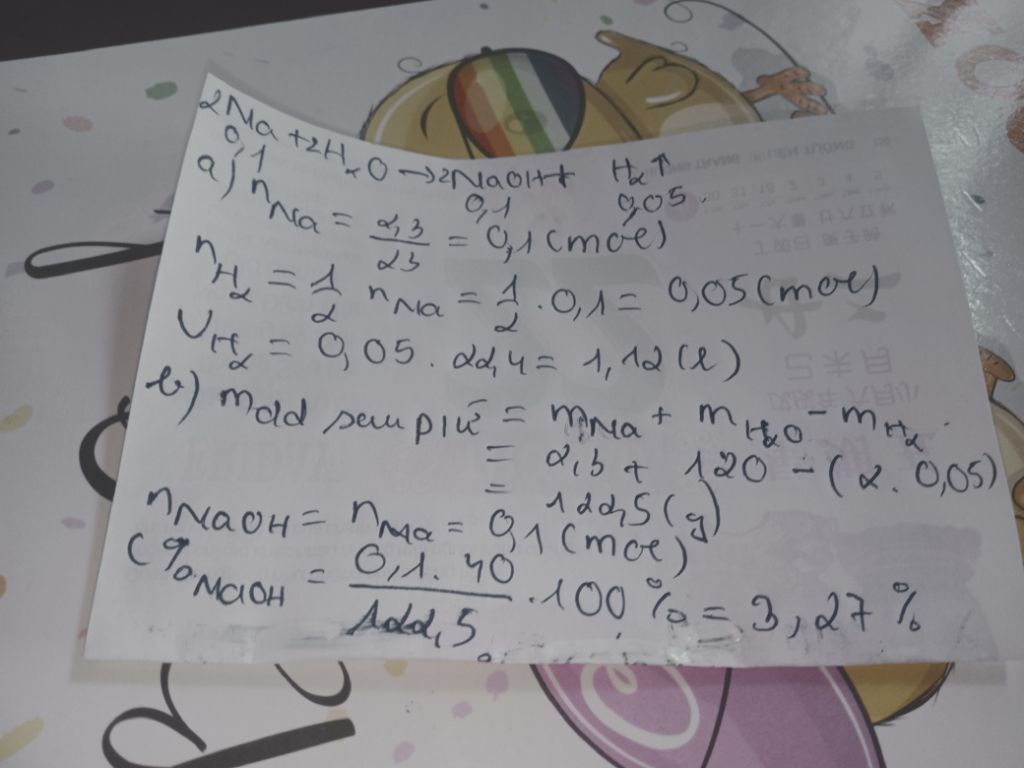 2Na + 2H₂O → 2NaOH + H₂↑
0,1 0,1 0,05.
a) nNa = 2,3/23 = 0,1 (mol)
nH₂ = 1/2 nNa = 1/2 . 0,1 = 0,05 (mol)
VH₂ = 0,05 . 22,4 = 1,12 (l)
b) mdd sau pứ = mNa + mH₂O - mH₂
= 2,3 + 120 - (2. 0,05)
= 122,5 (g)
nNaOH = nNa = 0,1 (mol)
C%NaOH = 0,1. 40/122,5 . 100% = 3,27 %